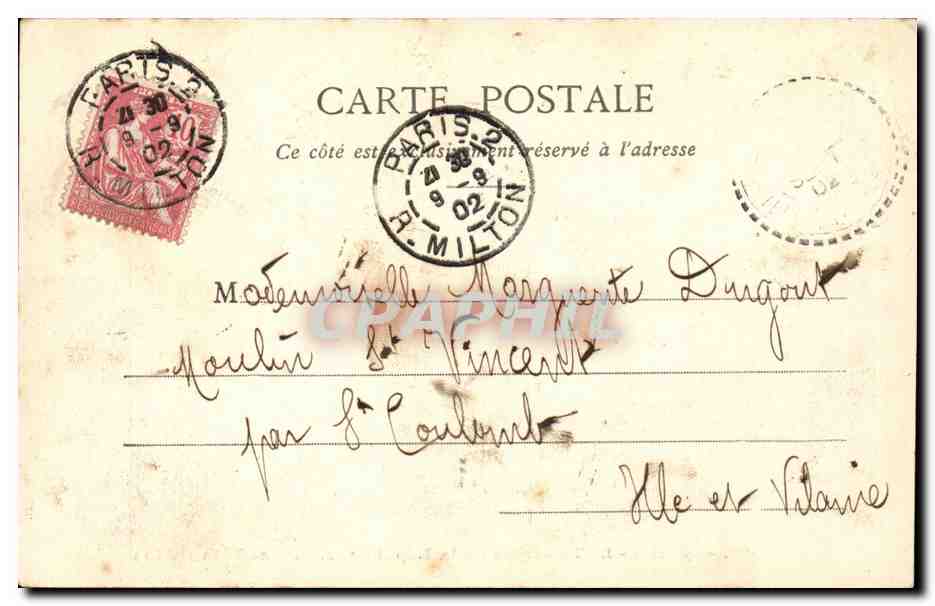 PARIS.2
21 30
9 -9
02
R. MILTON
CARTE POSTALE
PARIS.2
21 30
9 -9
02
R. MILTON
Ce côté est exclusivement réservé à l'adresse
02
Mademoiselle Marguerite Dugout
CPAPHIL
Moulin St Vincent
par St Coulomb
Ille et Vilaine